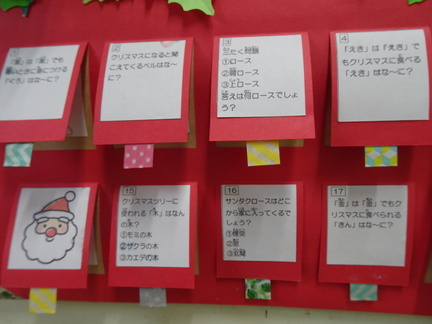 1
」は「
」でも
いときに
につける
はな~に?
2
クリスマスになると聞
こえてくるベルはな~
に?
3
三たく問題
①ロース
②肩ロース
③上ロース
答えは何ロースでしょ
う?
4
「えき」は「えき」で
もクリスマスに食べる
「えき」はな~に?
15
クリスマスツリーに
使われる「木」はなん
の木?
①モミの木
②サクラの木
③カエデの木
16
サンタクロースはどこ
から家に入ってくるで
しょう?
①煙突
②窓
③玄関
17
」は「
」でもク
リスマスに食べられる
「きん」はな~に?